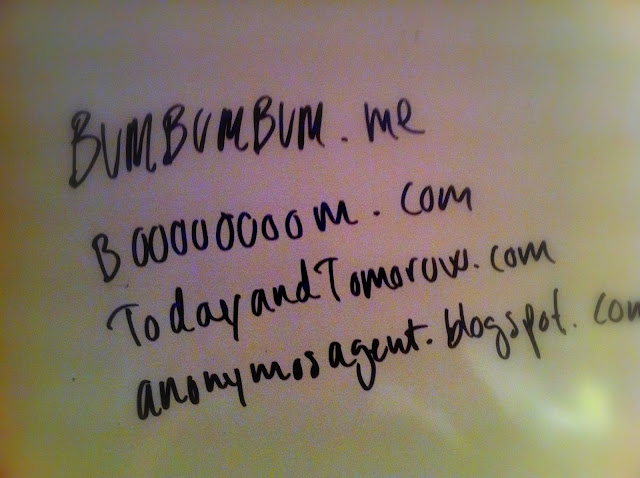 BUMBUMBUM.me
Boooooooom.com
TodayandTomorow.com
anonymosagent.blogspot.com